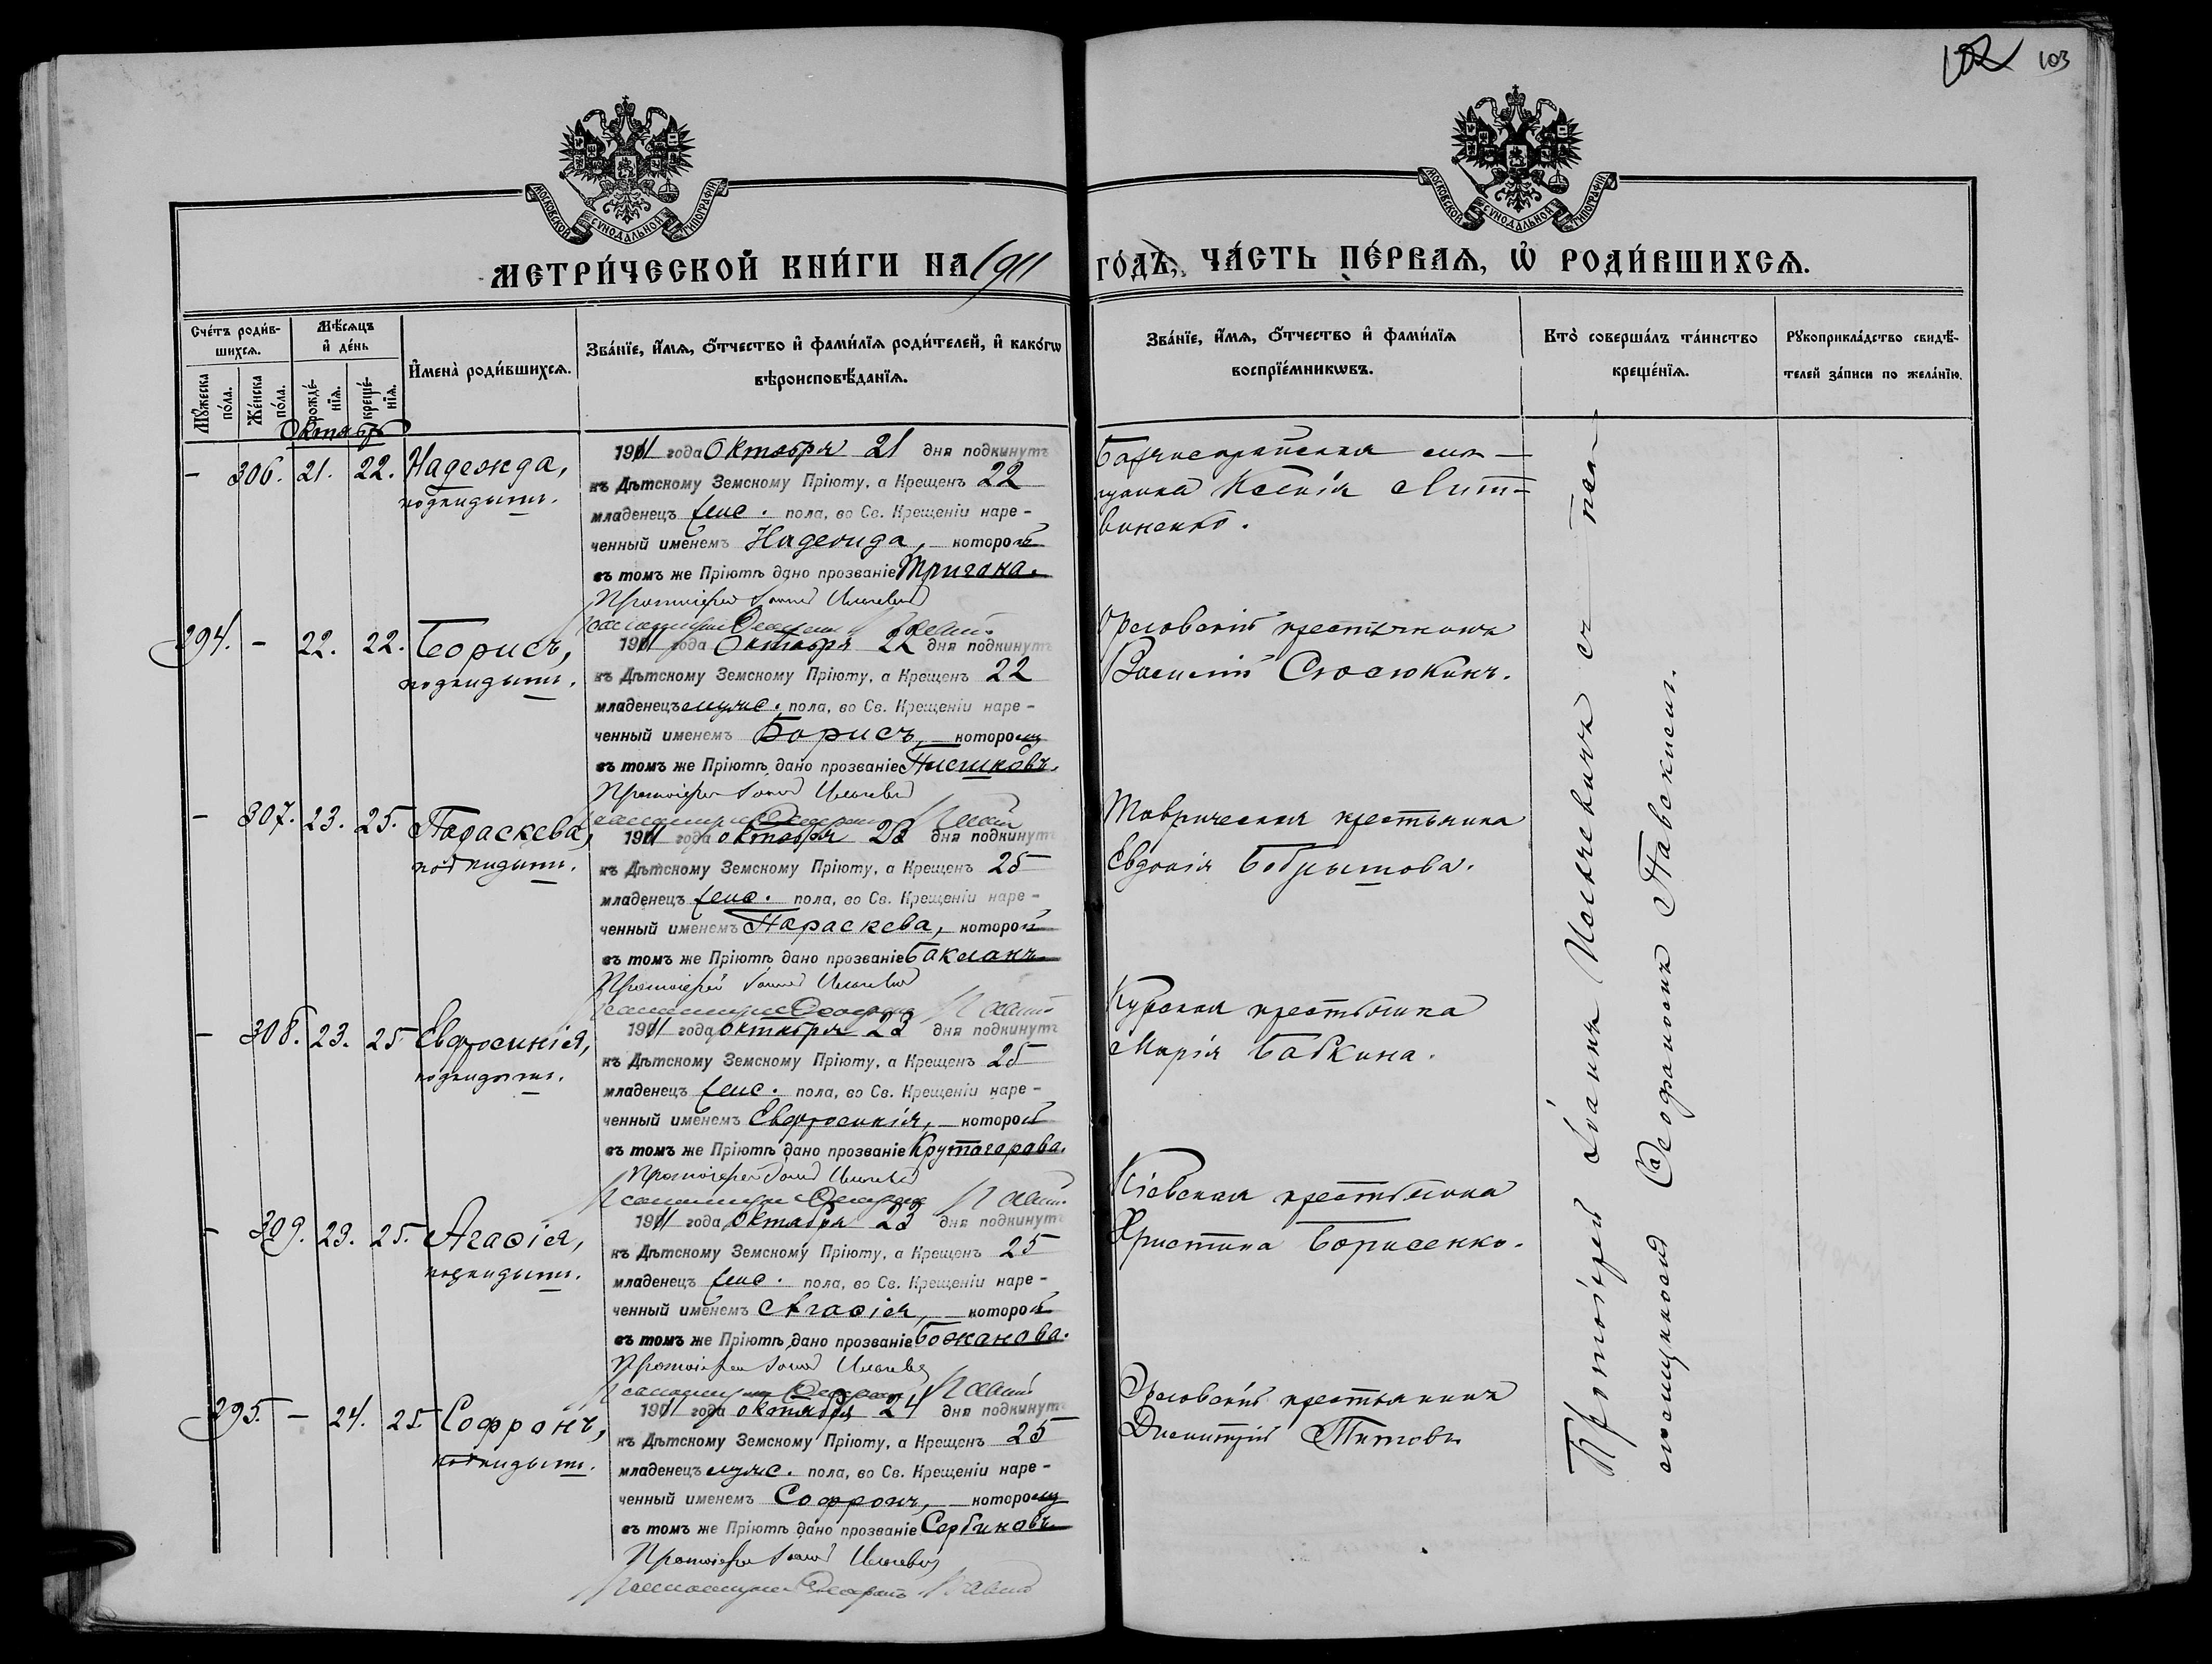 102 103
МОСКОВСКОЙ СУНОДАЛЬНОЙ ТИПОГРАФІИ
МОСКОВСКОЙ СУНОДАЛЬНОЙ ТИПОГРАФІИ
МЕТРИ́ЧЕСКОЙ КНИ́ГИ НА 1911 ГО́ДЪ, ЧА́СТЬ ПЕ́РВАѦ, Ѡ҆ РОДИ́ВШИХСѦ.
Сче́тъ роди́в-
шихсѧ.
Мꙋ́жеска по́ла.
Же́нска по́ла.
Мѣ́сѧцъ
и҆ де́нь
рожде́-
нїѧ.
креще́-
нїѧ.
И҆мена̀ роди́вшихсѧ.
Зва́нїе, и҆́мѧ, ѻ҆́тчество и҆ фами́лїѧ роди́телей, и҆ како́гѡ
вѣроисповѣ́данїѧ.
Зва́нїе, и҆́мѧ, ѻ҆́тчество и҆ фами́лїѧ
воспрїе́мникѡвъ.
Кто̀ соверша́лъ та́инство
креще́нїѧ.
Рꙋкоприкла́дство свидѣ́-
телей за́писи по жела́нїю.
Октябрь
– 306. 21. 22. Надежда,
подкидыш.
1911 года Октября 21 дня подкинутъ
къ Дѣтскому Земскому Пріюту, а Крещенъ 22
младенецъ женс. пола, во Св. Крещеніи наре-
ченный именемъ Надежда, которой
въ томъ же Пріютѣ дано прозваніе Тригана.
Протоіерей Іоаннъ
Бахчисарайская мѣ-
щанка Ксенія Лит-
виненко.
294. – 22. 22. Борисъ,
подкидыш.
1911 года Октября 22 дня подкинутъ
къ Дѣтскому Земскому Пріюту, а Крещенъ 22
младенецъ мужс. пола, во Св. Крещеніи наре-
ченный именемъ Борисъ, которому
въ томъ же Пріютѣ дано прозваніе Пышковъ.
Протоіерей Іоаннъ
Орловскій крестьянинъ
Василій Сюсюкинъ.
– 307. 23. 25. Параскева,
подкидыш.
1911 года октября 23 дня подкинутъ
къ Дѣтскому Земскому Пріюту, а Крещенъ 25
младенецъ женс. пола, во Св. Крещеніи наре-
ченный именемъ Параскева, которой
въ томъ же Пріютѣ дано прозваніе Бакланъ
Протоіерей Іоаннъ
Таврическая крестьянка
Евдокія Бобрышова.
– 308. 23. 25 Евфросинія,
подкидыш.
1911 года октября 23 дня подкинутъ
къ Дѣтскому Земскому Пріюту, а Крещенъ 25
младенецъ женс. пола, во Св. Крещеніи наре-
ченный именемъ Евфросинія, которой
въ томъ же Пріютѣ дано прозваніе Крутогарова.
Протоіерей Іоаннъ
Курская крестьянка
Марія Бабкина.
– 309. 23. 25. Агаѳія,
подкидыш.
1911 года октября 23 дня подкинутъ
къ Дѣтскому Земскому Пріюту, а Крещенъ 25
младенецъ женс. пола, во Св. Крещеніи наре-
ченный именемъ Агаѳія, которой
въ томъ же Пріютѣ дано прозваніе Божанова.
Протоіерей Іоаннъ
Кіевская крестьянка
Христина Борисенко.
295. – 24. 25 Софронъ,
подкидыш.
1911 года октября 24 дня подкинутъ
къ Дѣтскому Земскому Пріюту, а Крещенъ 25
младенецъ мужс. пола, во Св. Крещеніи наре-
ченный именемъ Софронъ, которому
въ томъ же Пріютѣ дано прозваніе Сербиковъ
Протоіерей Іоаннъ
Орловскій крестьянинъ
Димитрій Титовъ
Протоіерей Іоаннъ съ пса-
ломщикомъ Ѳеофаномъ Павскимъ.